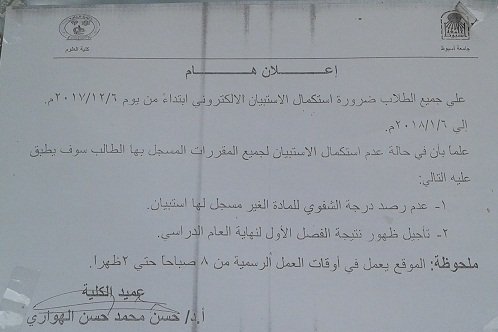 جامعة أسيوط
كلية العلوم
إعـــلان هـــام
على جميع الطلاب ضرورة استكمال الاستبيان الالكترونى ابتداءً من يوم ٢٠١٧/١٢/٦م.
إلى ٢٠١٨/١/٦م.
علماً بأن في حالة عدم استكمال الاستبيان لجميع المقررات المسجل بها الطالب سوف يطبق
عليه التالي:
١- عدم رصد درجة الشفوي للمادة الغير مسجل لها استبيان.
٢- تأجيل ظهور نتيجة الفصل الأول لنهاية العام الدراسى.
ملحوظة: الموقع يعمل في أوقات العمل الرسمية من ٨ صباحاً حتى ٢ ظهرا.
عميد الكلية
أ.د/ حسن محمد حسن الهواري